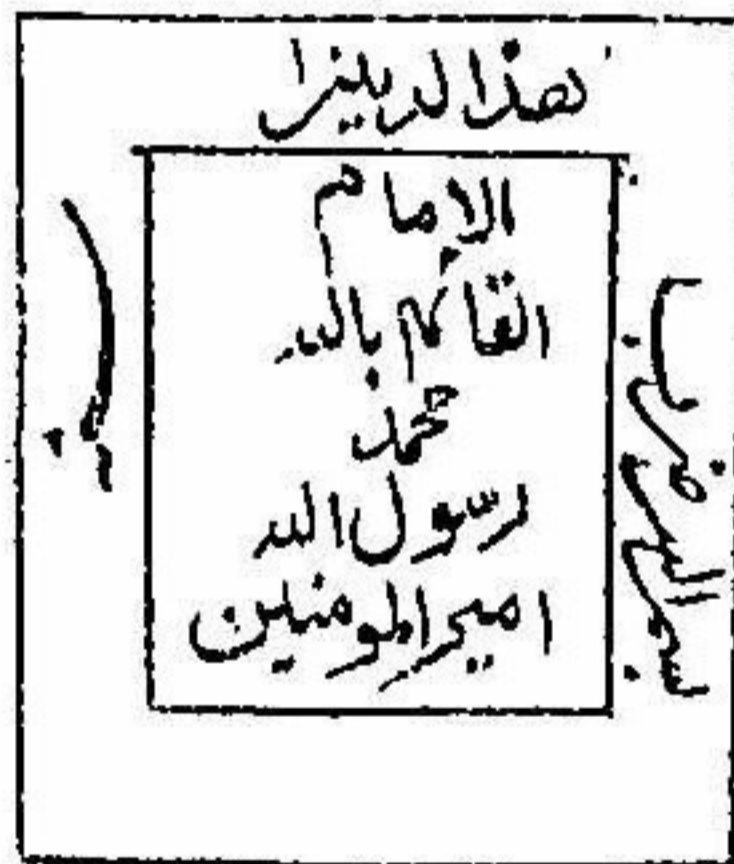 هذا الدينر
الإمام
القائم بالله
محمد
رسول الله
امير المومنين
بسم الله ضرب